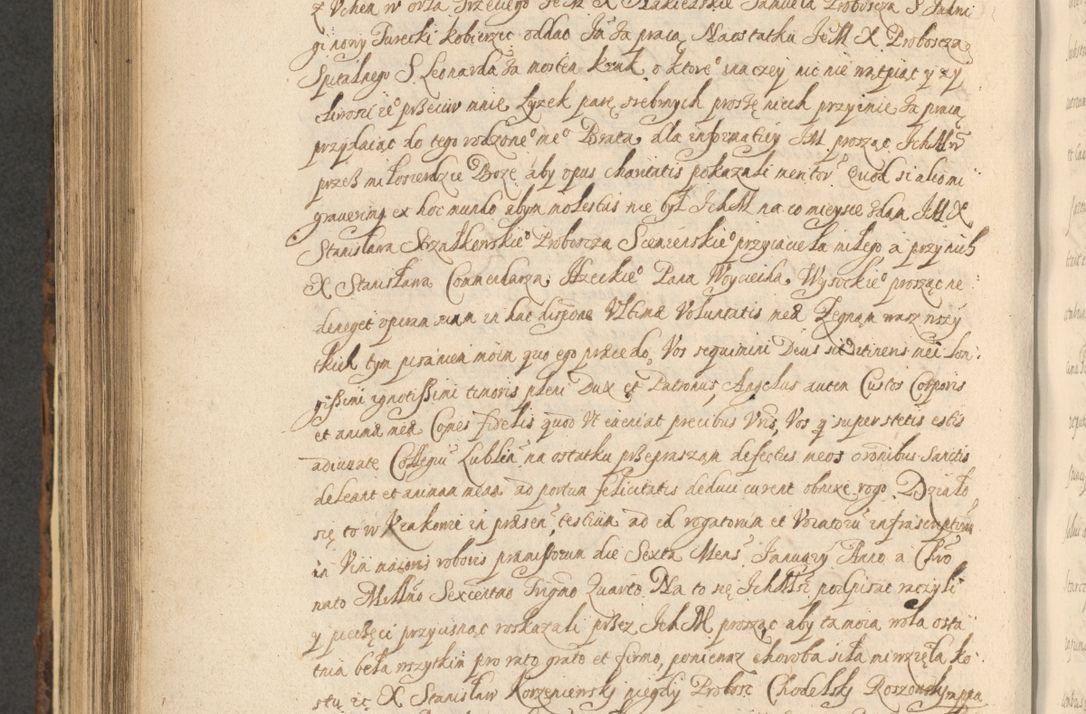 z Uchem w orła Trzeciego JeM X Makiewskie Samuela Proboscza S Jadwi
gi nowy Turecki kobierzec oddać Ja Za pracą Naostatku JeM X Proboscza
Spitalnego S Leonarda Za mostem Krak o ktore inaczey nic nie wątpiąc y zy
cliwosci ie przeciw mnie Łyzek parę srebrnych proszę niech przyimie Za pracą
przydaiąc do tego rodzone me Brata dla informatiey JM prosząc JchM
przeß miłosierdzie Boze aby opus charitatis pokazali men Quod si aliomi
gravering ex hoc mundo abym molestus nie był JchM na co mieysce zdam JM X
Stanisława Strzałkowskie Proboscza Scenienskie przyiaciela miłego a przynich
X Stanisława Commendarza Jlzeckie Pana Woyciecha Wysockie prosząc ne
deneget operam suam in hac dispone Ultimæ Voluntatis meæ Zegnam was wszy
tkich tym pisaniem moim quo ego præcedo Vos sequimini Deus sit itineris mei lon
gißimi ignotißimi timoris pleni Dux et Patronus, Angelus autem Custos Corporis
et animæ meæ Comes fidelis quod Ut eveniat precibus Vris Vos q superstetis estis
adiuvate Collegiu Lublin na ostatku przepraszam defectus meos oronibus Sanctis
deleant et animam meam ad portum felicitatis deduci curent obnixe rogo. Działo
się to w Krakowie in præsen testium ad id rogatorum et Vocatoru infrascriptorum
in Vim maioris roboris præmissorum die Sexta Mens January Anno a Chro
nato Mellno Sexcentno Trigmo Quarto Na to się JchM podpisać raczyli
y pieczęci przycisnąc roskazali przez JchM prosząc aby ta moia wola osta
tnia beła wszytkim pro rato grato et firmo, poniewaz choroba siła mi wzięła ko
stu ze X Stanisław Korzeniewsky niegdy Probosc Chodelsky Roszowsky mppa